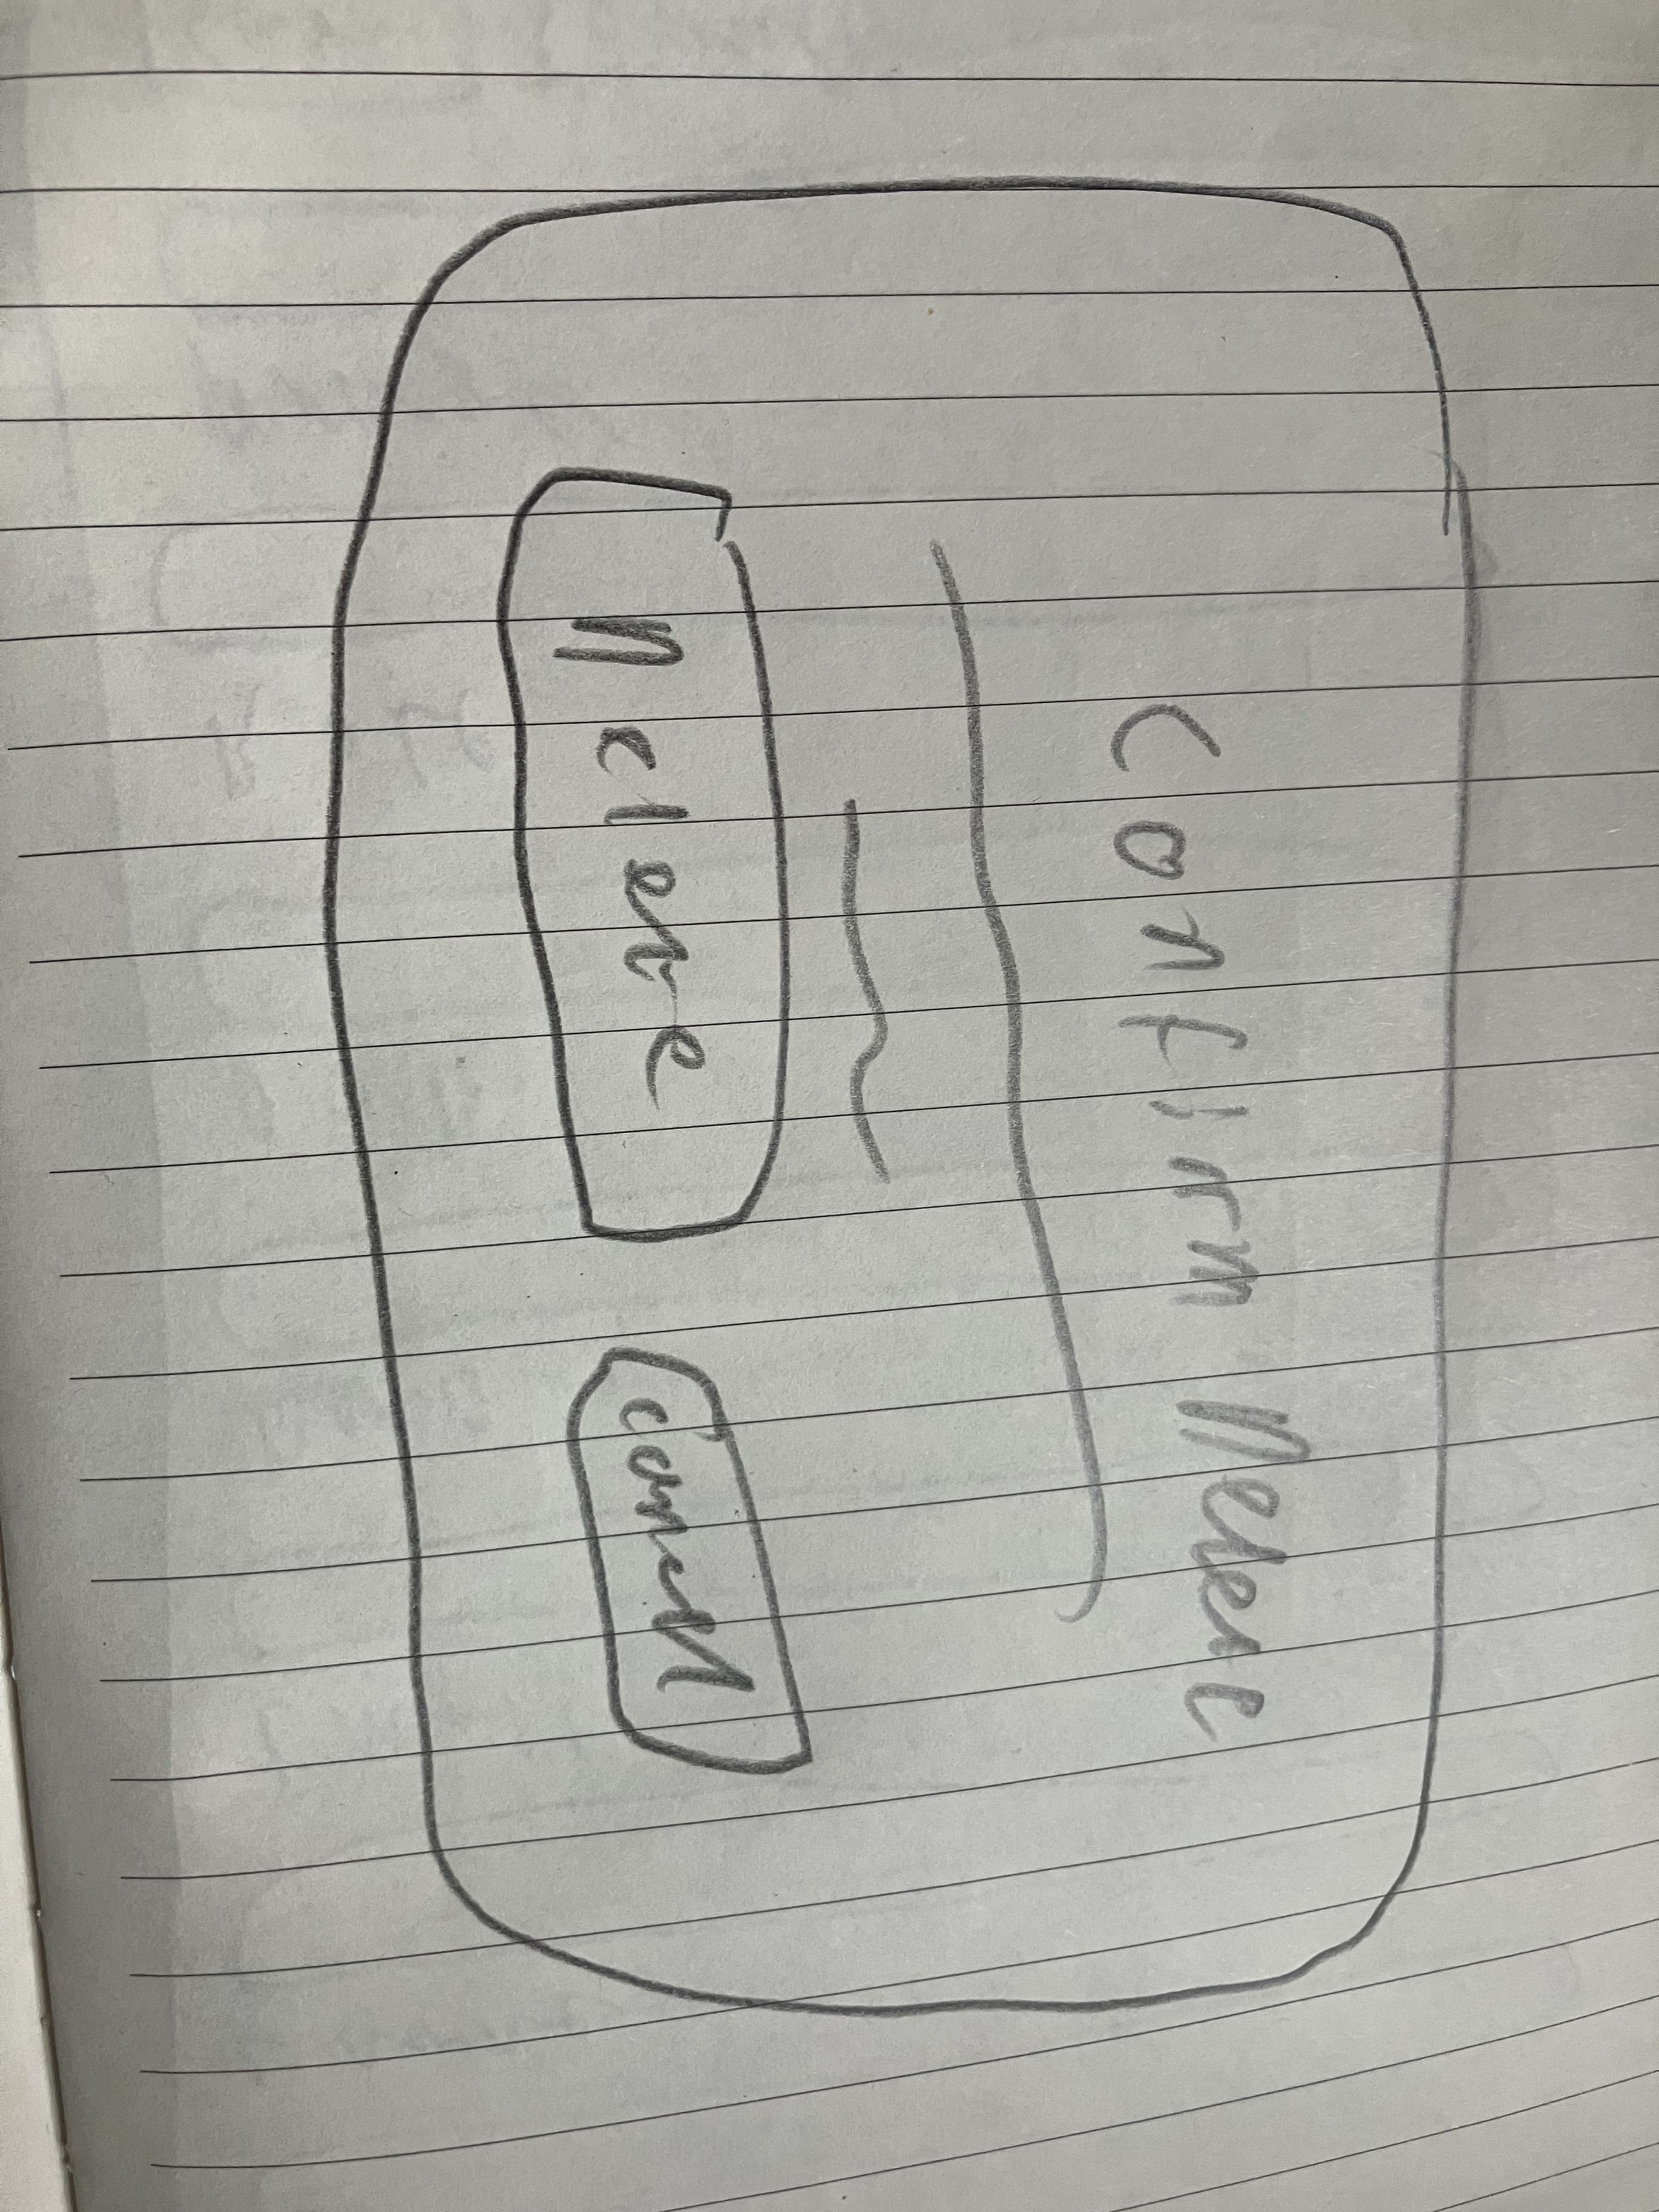 Confirm Delete
Delete
Cancel